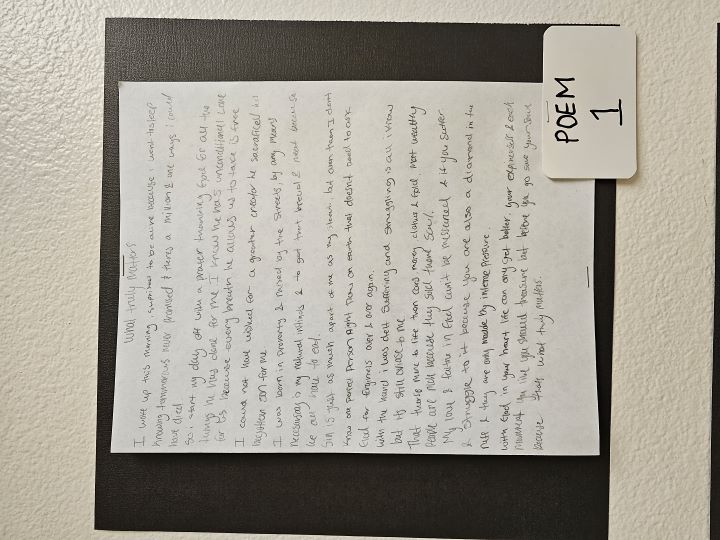 What truly Matters
I woke up this morning, suprised to be alive because I went to sleep
knowing tomorrows never promised & theres a million & one ways I could
have died
So, I start my day off with a prayer thanking God for all the
things he has done for me I know he has unconditional Love
for us because every breath he allows us to take is free
I could not have wished for a greater creator he sacraficed his
son for me
I was born in poverty & raised by the streets, by any means
necessary is my natural instinct & to get that bread & meat because
we all have to eat.
Sin is just as much apart of me as my heart. but even then I don't
know one perfect person right now on earth that doesn't need to ask
God for forgivness over & over again.
with the hand I was delt suffering and struggling is all I know
but its still obvious to me
That theres more to life than cars money clothes & Gold most wealthy
people are rich because they sold there soul.
My love & faith in God can't be measured & if you suffer
& struggle to it because you are also a diamond in the
ruff & they are only made by intense pressure
with God in your heart life can only get better, your & each
moment you live you should treasure but before you go save your soul
because thats what truly matters.
POEM
1